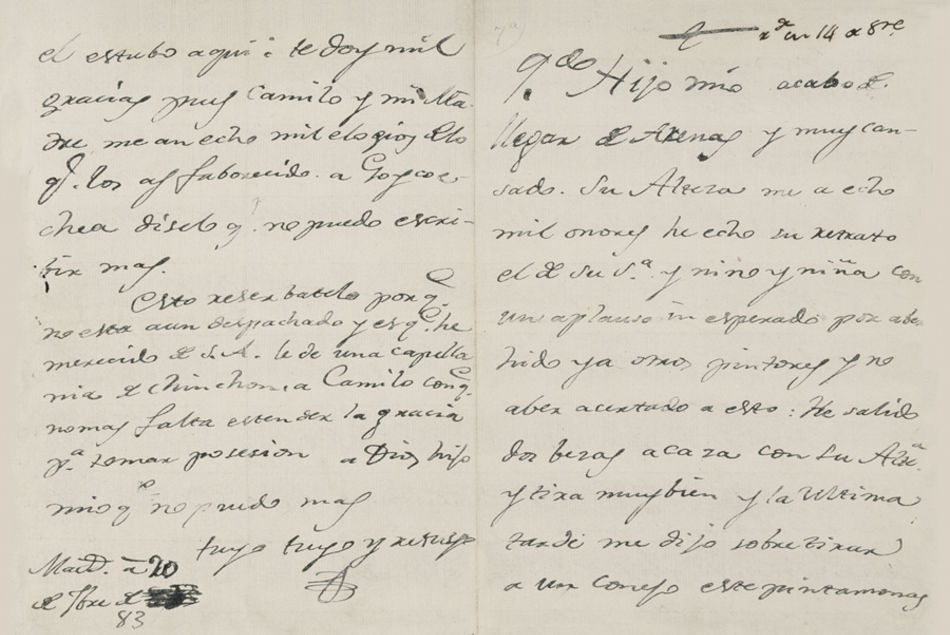 el estubo aqui: te doy mil
gracias pues Camilo y mi Ma-
dre me an echo mil elogios de lo
q.e los as faborecido. a Goycoe-
chea diselo q.e no puedo escri-
bir mas.
Esto reserbatelo porq.e
no esta aun despachado y es q.e he
merecido de S. A. le de una capella
nia de Chinchon, a Camilo conq.e
no mas falta estender la gracia
p.a tomar posesion a Dios hijo
mio q.e no puedo mas
tuyo tuyo y retuyo
Mad.d a 20
de 7bre de
83
r.da en 14 a 8re
Q.do Hijo mio acabo de
llegar de Arenas y muy can-
sado. Su Alteza me a echo
mil onores, he echo su retrato
el de su S.a y niño y niña con
un aplauso in esperado por aber
hido ya otros pintores y no
aber acertado a esto: He salido
dos bezes a caza con su Alt.a
y tira muy bien y la ultima
tarde me dijo sobre tirar
a un conejo este pintamonas